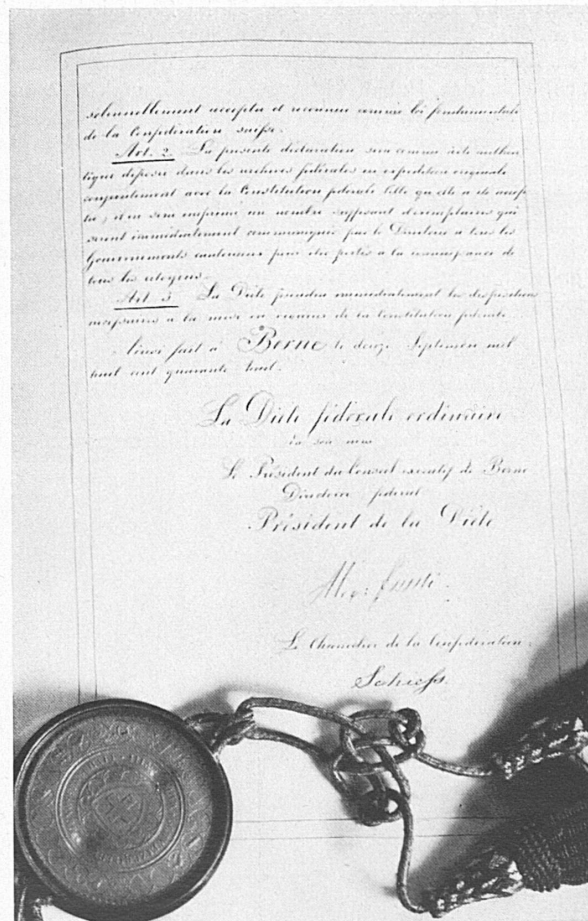 solennellement acceptée et reconnue comme loi fondamentale
de la Confédération suisse.
Art. 2. La présente déclaration sera comme acte authen
tique déposée dans les archives fédérales en expédition originale
conjointement avec la Constitution fédérale telle qu'elle a été accep
tée; il en sera imprimé un nombre suffisant d'exemplaires qui
seront immédiatement communiqués par le Directoire à tous les
Gouvernements cantonaux pour être portés à la connaissance de
tous les citoyens.
Art. 3 La Diète prendra immédiatement les dispositions
nécessaires à la mise en vigueur de la Constitution fédérale.
Ainsi fait à Berne le douze Septembre mil
huit cent quarante huit.
La Diète fédérale ordinaire
en son nom
Le Président du Conseil exécutif de Berne
Directoire fédéral
Président de la Diète
Alex: Funk
Le Chancelier de la Confédération,
Schiefs.